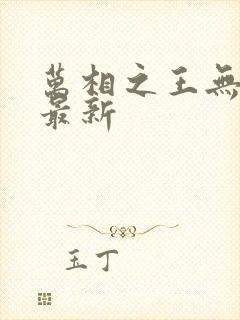 萬相之王無
最新
玉丁